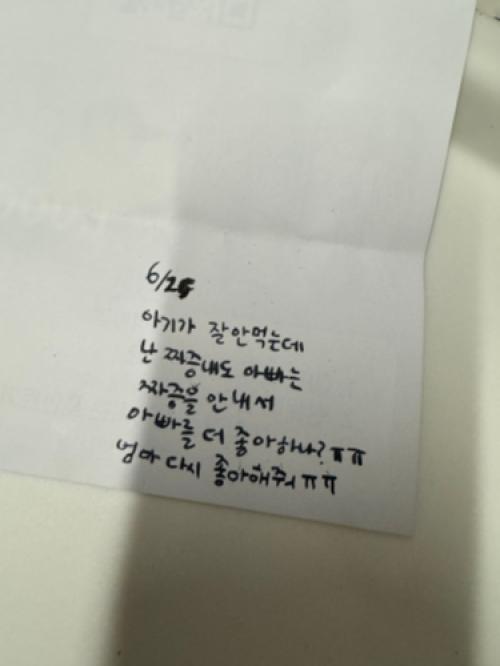 6/25
아기가 잘안먹는데
난 짜증내도 아빠는
짜증을 안내서
아빠를 더 좋아하나? ㅠㅠ
엄마 다시 좋아해줘 ㅠㅠ